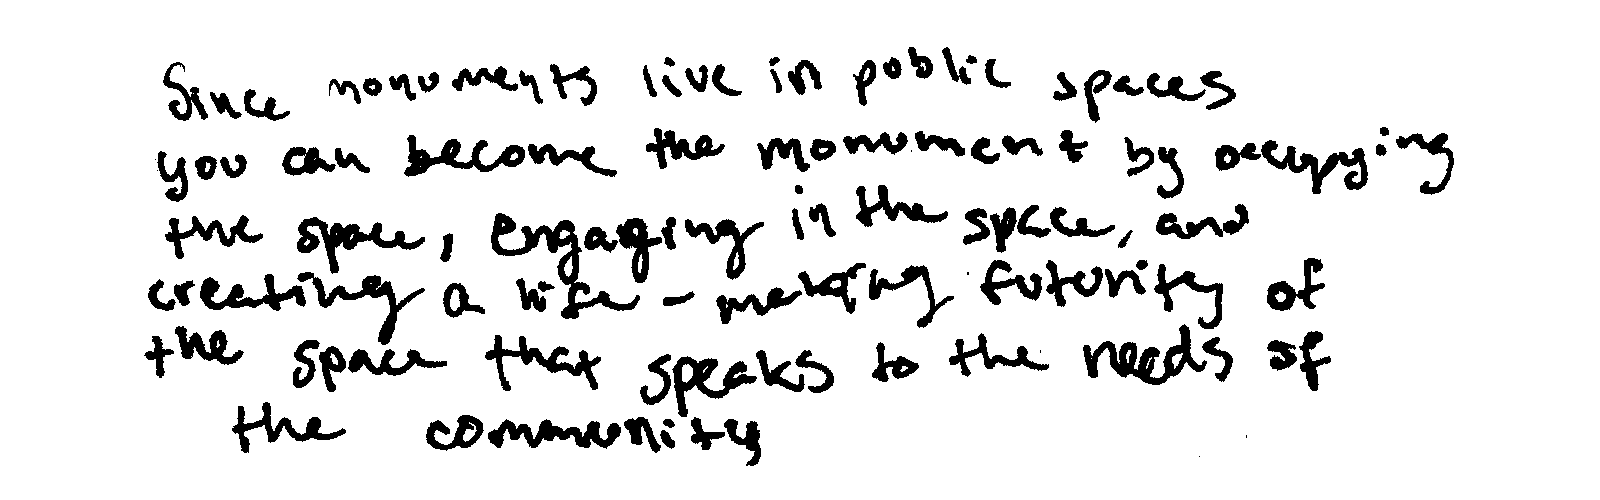 Since monuments live in public spaces
you can become the monument by occupying
the space, engaging in the space, and
creating a life-making futurity of
the space that speaks to the needs of
the community